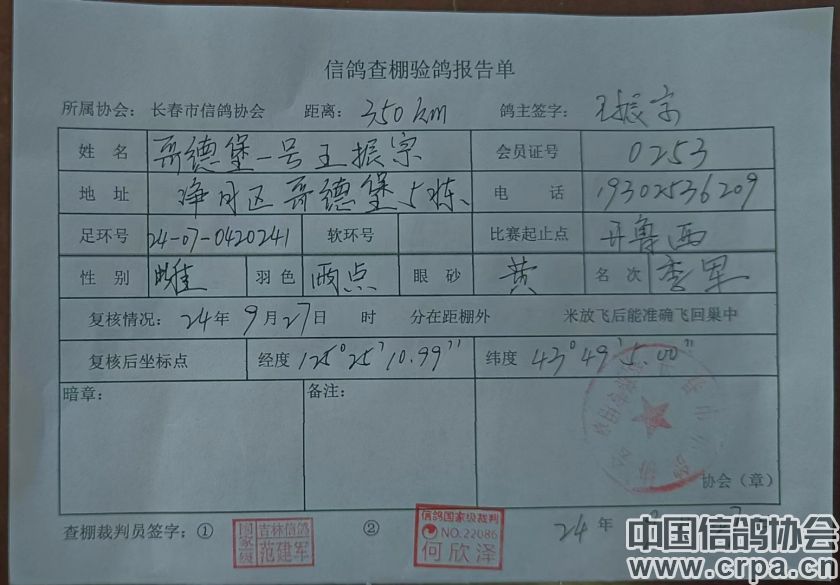 信鸽查棚验鸽报告单
所属协会: 长春市信鸽协会 距离: 350km 鸽主签字: 王振宗
姓 名 哥德堡一号王振宗 会员证号 0253
地 址 净月区哥德堡5栋、 电 话 19302536209
足环号 24-07-0420241 软环号 比赛起止点 开鲁西
性 别 雌 羽色 雨点 眼 砂 黄 名 次 季军
复核情况: 24年 9月27日 时 分在距棚外 米放飞后能准确飞回巢中
复核后坐标点 经度 125°25'10.99" 纬度 43°49'5.00"
暗章: 备注:
协会（章）
查棚裁判员签字: ① 国家级 吉林信鸽 范建军 ② 信鸽国家级裁判 NO.22086 何欣泽 24年
中国信鸽协会
www.crpa.cn